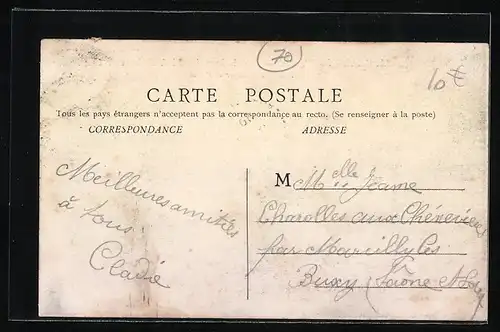 70
10
CARTE POSTALE
Tous les pays étrangers n'acceptent pas la correspondance au recto. (Se renseigner à la poste)
CORRESPONDANCE
ADRESSE
Meilleures amitiés
à tous
M Melle Jeanne
Charolles aux Chéneviers
par Marcilly les
Buxy (Saône et